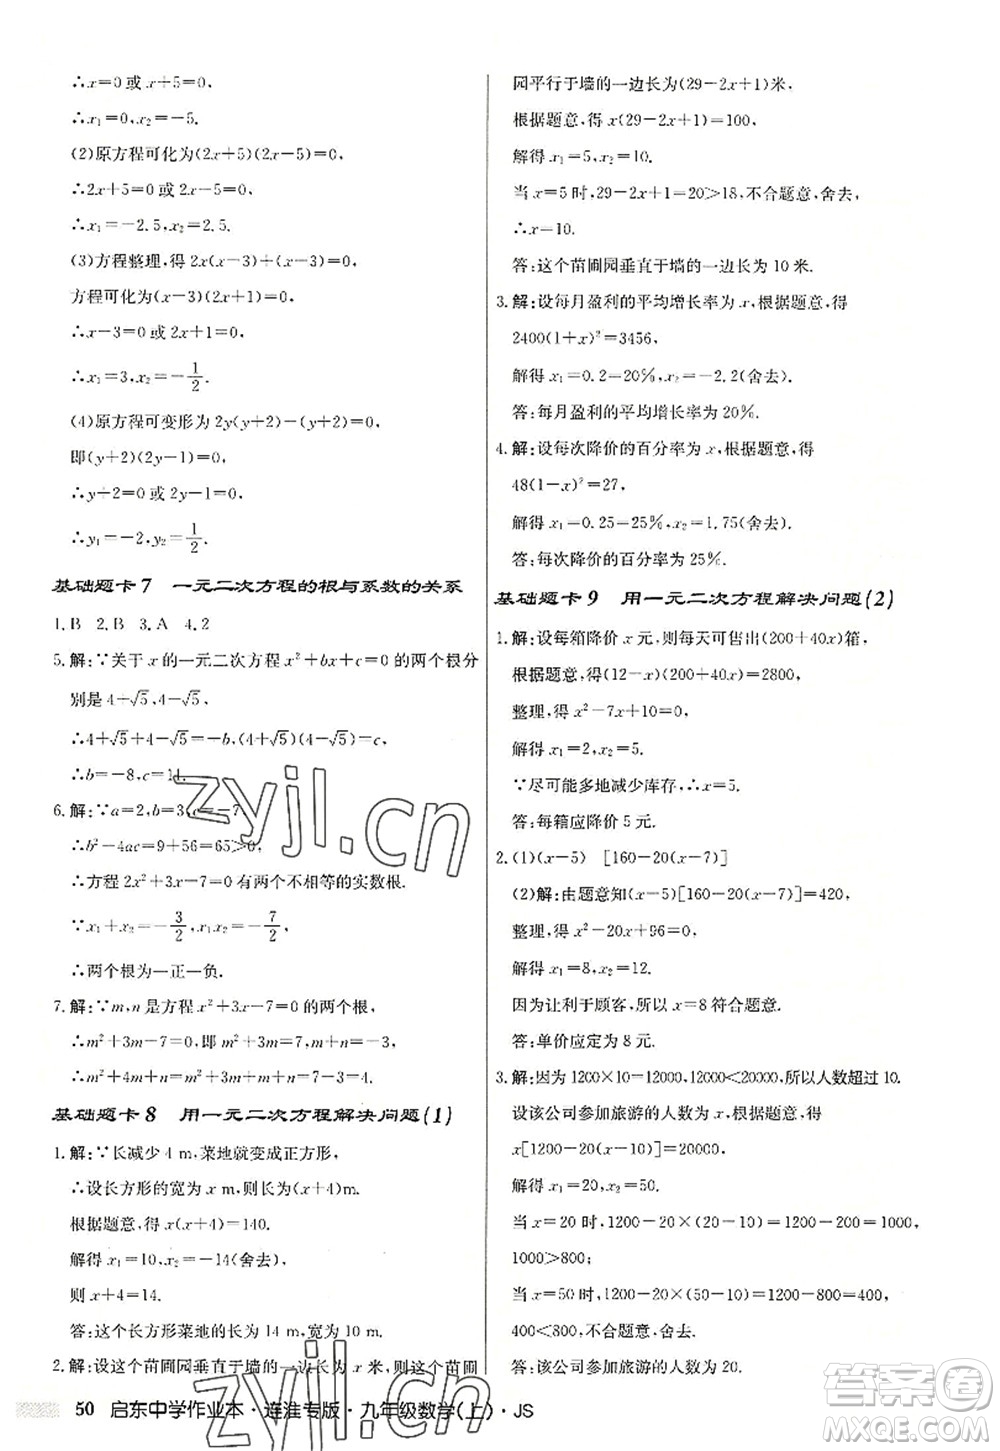 ∴x=0 或 x+5=0,
∴x₁=0, x₂=-5.
(2)原方程可化为(2x+5)(2x-5)=0,
∴2x+5=0 或 2x-5=0,
∴x₁=-2.5, x₂=2.5.
(3)方程整理,得 2x(x-3)+(x-3)=0,
方程可化为(x-3)(2x+1)=0,
∴x-3=0 或 2x+1=0,
∴x₁=3, x₂=-1/2.
(4)原方程可变形为 2y(y+2)-(y+2)=0,
即(y+2)(2y-1)=0,
∴y+2=0 或 2y-1=0,
∴y₁=-2, y₂=1/2.
基础题卡7 一元二次方程的根与系数的关系
1. B 2. B 3. A 4. 2
5. 解:∵关于 x 的一元二次方程 x²+bx+c=0 的两个根分
别是 4+√5, 4-√5,
∴4+√5+4-√5=-b, (4+√5)(4-√5)=c,
∴b=-8, c=11.
6. 解:∵a=2, b=3, c=-7,
∴b²-4ac=9+56=65>0,
∴方程 2x²+3x-7=0 有两个不相等的实数根.
∵x₁+x₂=-3/2, x₁x₂=-7/2,
∴两个根为一正一负.
7. 解:∵m,n 是方程 x²+3x-7=0 的两个根,
∴m²+3m-7=0, 即 m²+3m=7, m+n=-3,
∴m²+4m+n=m²+3m+m+n=7-3=4.
基础题卡8 用一元二次方程解决问题(1)
1. 解:∵长减少 4 m, 菜地就变成正方形,
∴设长方形的宽为 x m, 则长为(x+4)m.
根据题意,得 x(x+4)=140.
解得 x₁=10, x₂=-14(舍去),
则 x+4=14.
答:这个长方形菜地的长为 14 m, 宽为 10 m.
2. 解:设这个苗圃园垂直于墙的一边长为 x 米, 则这个苗圃
园平行于墙的一边长为(29-2x+1)米,
根据题意,得 x(29-2x+1)=100,
解得 x₁=5, x₂=10.
当 x=5 时, 29-2x+1=20>18, 不合题意, 舍去,
∴x=10.
答:这个苗圃园垂直于墙的一边长为 10 米.
3. 解:设每月盈利的平均增长率为 x, 根据题意,得
2400(1+x)²=3456,
解得 x₁=0.2=20%, x₂=-2.2(舍去).
答:每月盈利的平均增长率为 20%.
4. 解:设每次降价的百分率为 x, 根据题意,得
48(1-x)²=27,
解得 x₁=0.25=25%, x₂=1.75(舍去).
答:每次降价的百分率为 25%.
基础题卡9 用一元二次方程解决问题(2)
1. 解:设每箱降价 x 元, 则每天可售出(200+40x)箱,
根据题意,得(12-x)(200+40x)=2800,
整理,得 x²-7x+10=0,
解得 x₁=2, x₂=5.
∵尽可能多地减少库存, ∴x=5.
答:每箱应降价 5 元.
2. (1)(x-5) [160-20(x-7)]
(2)解:由题意知(x-5)[160-20(x-7)]=420,
整理,得 x²-20x+96=0,
解得 x₁=8, x₂=12.
因为让利于顾客, 所以 x=8 符合题意.
答:单价应定为 8 元.
3. 解:因为 1200×10=12000<20000, 所以人数超过 10.
设该公司参加旅游的人数为 x,
x[1200-20(x-10)]=20000,
解得 x₁=20, x₂=50.
当 x=20 时, 1200-20×(20-10)=1200-200=1000,
1000>800;
当 x=50 时, 1200-20(50-10)=1200-800=400,
400<800, 不合题意, 舍去.
答:该公司参加旅游的人数为 20.
50 启东中学作业本·连淮专版·九年级数学(上)·JS
zyjl.cn
zyjl.cn
答案圈
MXQE.COM